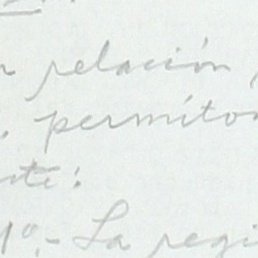 relación
permíto
te:
1º.- La regi